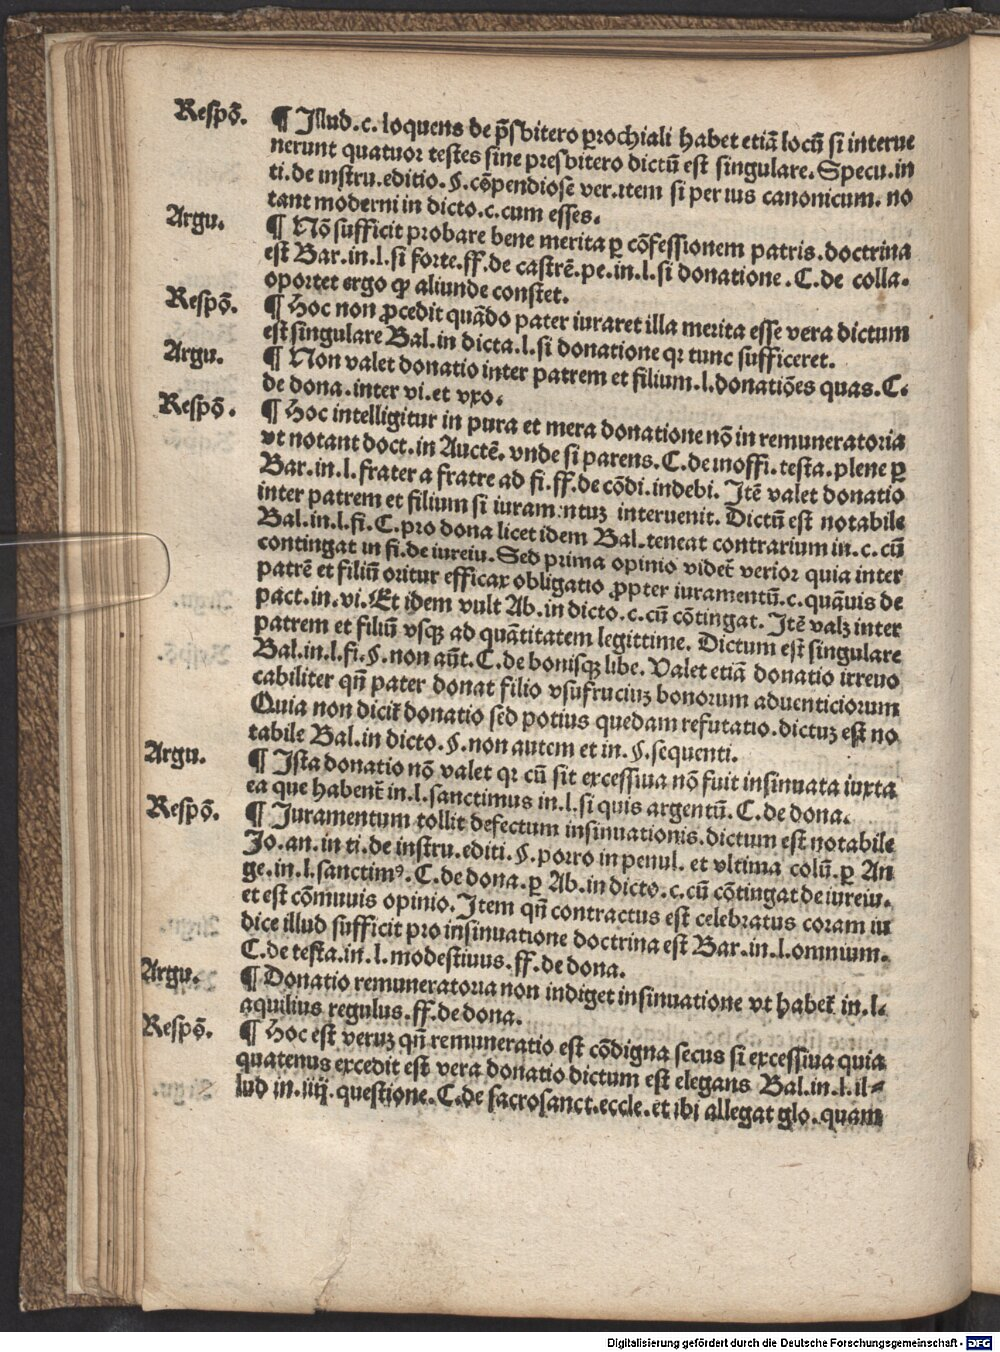 Respō. ¶ Illud.c.loquens de p̄sbitero ꝑrochiali habet etiā locū si interue
nerunt quatuor testes sine presbitero dictū est singulare.Specu.in
ti.de instru.editio.§.cōpendiose ver.item si per ius canonicum.no
tant moderni in dicto.c.cum esses.
Argu. ¶ Nō sufficit probare bene merita ꝑ cōfessionem patris.doctrina
est Bar.in.l.si forte.ff.de castrē.pe.in.l.si donatione.C.de colla.
oportet ergo ꝙ aliunde constet.
Respō. ¶ Hoc non ꝓcedit quādo pater iuraret illa merita esse vera dictum
est singulare Bal.in dicta.l.si donatione qꝛ tunc sufficeret.
Argu. ¶ Non valet donatio inter patrem et filium.l.donatiōes quas.C.
de dona.inter vi.et vxo.
Respō. ¶ Hoc intelligitur in pura et mera donatione nō in remuneratoria
vt notant doct.in Auctē.vnde si parens.C.de inoffi.testa.plene ꝑ
Bar.in.l.frater a fratre ad fi.ff.de cōdi.indebi. Itē valet donatio
inter patrem et filium si iuramentuꝫ interuenit. Dictū est notabile
Bal.in.l.fi.C.pro dona licet idem Bal.teneat contrarium in.c.cū
contingat in fi.de iureiu.Sed prima opinio videt̄ verior quia inter
patrē et filiū oritur efficax obligatio ꝓpter iuramentū.c.quāuis de
pact.in.vi.Et idem vult Ab.in dicto.c.cū cōtingat. Itē valꝫ inter
patrem et filiū vsqꝫ ad quātitatem legittime. Dictum est singulare
Bal.in.l.fi.§.non aūt.C.de bonisqꝫ libe. Valet etiā donatio irreuo
cabiliter qn̄ pater donat filio vsufructuꝫ bonorum aduenticiorum
Quia non dicit̄ donatio sed potius quedam refutatio.dictuꝫ est no
tabile Bal.in dicto.§.non autem et in.§.sequenti.
Argu. ¶ Ista donatio nō valet qꝛ cū sit excessiua nō fuit insinuata iuxta
ea que habent̄ in.l.sanctimus in.l.si quis argentū.C.de dona.
Respō. ¶ Iuramentum tollit defectum insinuationis.dictum est notabile
Jo.an.in ti.de instru.editi.§.porro in penul. et vltima colū.ꝑ An
ge.in.l.sanctimꝰ.C.de dona.ꝑ Ab.in dicto.c.cū cōtingat de iureiu.
et est cōmunis opinio. Item qn̄ contractus est celebratus coram iu
dice illud sufficit pro insinuatione doctrina est Bar.in.l.omnium.
C.de testa.in.l.modestinus.ff.de dona.
Argu. ¶ Donatio remuneratoria non indiget insinuatione vt habet̄ in.l.
aquilius regulus.ff.de dona.
Respō. ¶ Hoc est veruꝫ qn̄ remuneratio est cōdigna secus si excessiua quia
quatenus excedit est vera donatio dictum est elegans Bal.in.l.il-
lud in.iiij.questione.C.de sacrosanct.eccle.et ibi allegat glo.quam
Digitalisierung gefördert durch die Deutsche Forschungsgemeinschaft - DFG